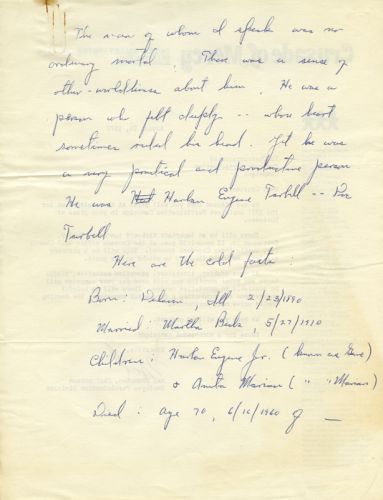 The man of whom I speak was no
ordinary mortal. There was a sense of
other-worldliness about him. He was a
person who felt deeply -- whose heart
sometimes ruled his head. Yet he was
a very practical and productive person
He was Harlan Eugene Tarbell -- Doc
Tarbell
Here are the cold facts:
Born: Delavan, Ill. 2/23/1890
Married: Martha Beck, 5/27/1910
Children: Harlan Eugene Jr. (known as Gene)
& Anita Marian ( " " Marian)
Died: age 70, 6/16/1960 of —
Crusade of Mercy